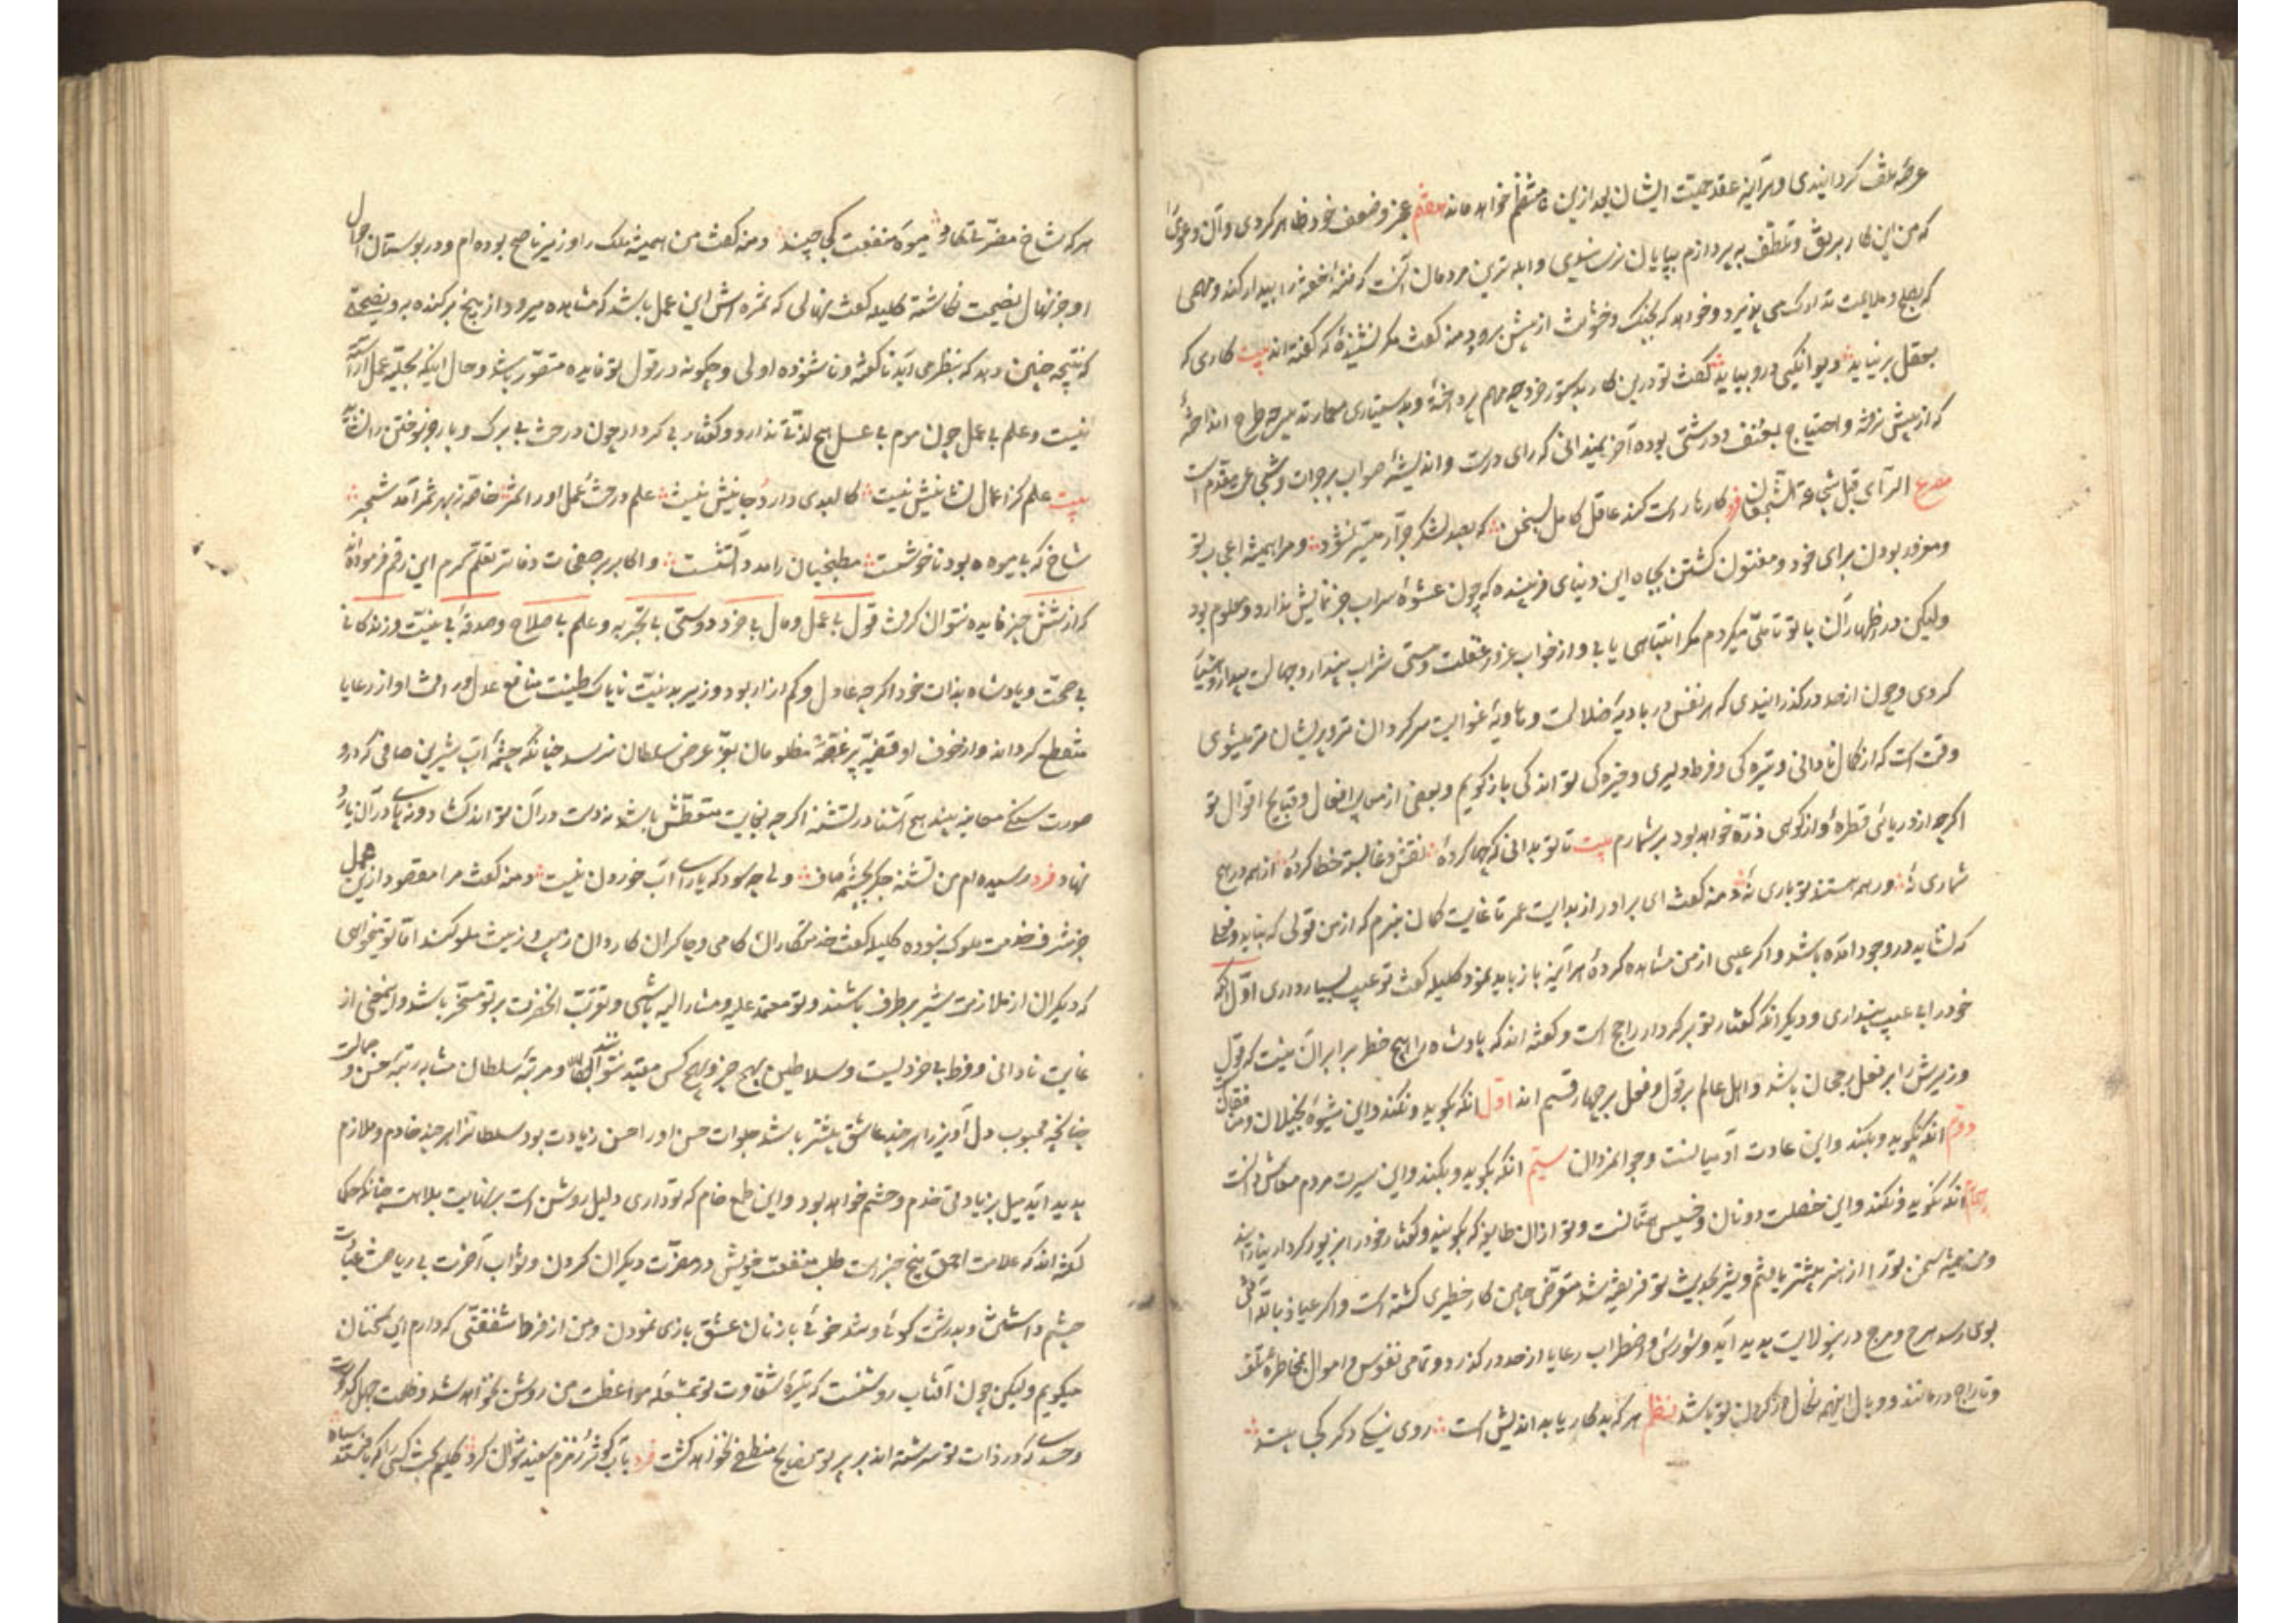 عرضهٔ تلف گردانیدی و هرآینه عقد جمعیت ایشان بعد ازین نه منتظم خواهد ماند هفتم عجز و ضعف خود ظاهر کردی و آن دعوی
که من این کار برفق و تلطف بپردازم بپایان نرسانیدی و ابله ترین مردمان آنست که فتنهٔ خفته را بیدار کند و مهمی
که بصلح و ملایمت تدارک می پذیرد و خواهد که بجنگ و خشونت از پیش برود دمنه گفت مگر نشنیدهٔ که گفته اند بیت کاری که
بعقل برنیاید دیوانگیی درو بباید گفت تو درین کار بدستور خرد چه مهم پرداختهٔ و بدستیاری معمار تدبیر چه طرح انداختهٔ
که از پیش نرفته و احتیاج بعنف و درشتی بوده آخر نمیدانی که رای درست و اندیشهٔ صواب بر جرات و شجاعت مقدم است
مصرع الرأی قبل شجاعة الشجعان فرد کارها راست کند عاقل کامل بسخن که بصد لشکر جرار میسر نشود و مرا همیشه اعجاب تو
و مغرور بودن برای خود و مفتون گشتن بجاه این دنیای فریبنده که چون عشوهٔ سراب جز نمایش ندارد معلوم بود
ولیکن در اظهار آن با تو تأملی میکردم مگر انتباهی یابی و از خواب غرور غفلت و مستی شراب پندار و جهالت بیدار و هشیار
گردی و چون از حد درگذرانیدی که هر نفس در بادیهٔ ضلالت و هاویهٔ غوایت سرگردان تر و پریشان تر میشوی
وقت است که از کمال نادانی و تیره گی و فرط دلیری و خیره گی تو اندکی بازگویم و بعضی از معایب افعال و قبایح اقوال تو
اگرچه از دریائی قطرهٔ و از کوهی ذرهٔ خواهد بود بر شمارم بیت تا تو بدانی که چها کردهٔ نقش دغا بسته خطا کردهٔ از همه در هیچ
شماری نهٔ ور همه هستند تو باری نهٔ دمنه گفت ای برادر از بدایت عمر تا غایت گمان نبرم که از من قولی که نباید و فعلی
که نشاید در وجود آمده باشد و اگر عیبی از من مشاهده کردهٔ هرآینه باز باید نمود کلیله گفت تو عیب بسیار داری اول آنکه
خود را بی عیب پنداری و دیگر آنکه گفتار تو بر کردار راجح است و گفته اند که پادشاه را هیچ خطر برابر آن نیست که قول
وزیرش را بر فعل رجحان باشد و اهل عالم بر قول و فعل بر چهار قسم اند اول آنکه بگوید و نکند و این شیوهٔ بخیلان و منافقان
دوم آنکه نگوید و بکند و این عادت آدمیانست و جوانمردان سیم آنکه بگوید و بکند و این سیرت مردم معاش دانست
چهارم آنکه نگوید و نکند و این خصلت دونان و خسیس همتانست و تو ازان طایفه که بگویند و گفتار خود را بزیور کردار نیارایند
و من همیشه سخن تو را از هنر بیشتر یافتم و شیر بحدیث تو فریفته شد متعرض چنین کار خطیری گشته است و اگر عیاذ بالله آفتی
بوی رسد هرج و مرج درین ولایت پدید آید و شورش و اضطراب رعایا از حد درگذرد و تمامی نفوس و اموال بمخاطرهٔ تلف
و تاراج درمانند و وبال اینهمه نکال در گردن تو باشد نظم هر که بدکار یا بداندیش است روی نیکی دگر کجا بیند
هر که شاخ مضرتی کارد میوهٔ منفعت کجا چیند دمنه گفت من همیشه ملک را وزیر ناصح بوده ام و در بوستان احوال
او جز نهال نصیحت نکاشته کلیله گفت نهالی که ثمره اش این عمل باشد که مشاهده میرود از بیخ برکنده به و نصیحتی
که نتیجه چنین دهد که بنظر می آید ناگفته و ناشنوده اولی و چگونه در قول تو فایده متصور باشد و حال اینکه بحلیهٔ عمل آراسته
نیست و علم بی عمل چون موم بی عسل هیچ لذتی ندارد و گفتار بی کردار چون درخت بی برگ و بار جز سوختن را نشاید
بیت علم کز اعمال نشانیش نیست کالبدی دارد و جانیش نیست علم درخت و عمل او را ثمر خاصه ز بهر ثمر آمد شجر
شاخ که بی میوه بود ناخوشست مطبخیان را مدد آتشست و اکابر بر صفحات دفاتر بقلم تکرم این رقم فرموده اند
که از شش چیز فایده نتوان گرفت قول بی عمل و مال بی خرد و دوستی بی تجربه و علم بی صلاح و صدقهٔ بی نیت و زندگانی
بی صحت و پادشاه بذات خود اگرچه عادل و کم آزار بود وزیر بدنیت ناپاک طینت منافع عدل و رأفت او از رعایا
منقطع گرداند و از خوف او قضیهٔ پر غصهٔ مظلومان بعز عرض سلطان نرسد چنانکه چشمهٔ آب شیرین صافی که درو
صورت نهنگ معاینه بیند هیچ آشنا ور تشنه اگرچه بغایت متعطش باشد نه دست در آن تواند کشاد و نه پای در آن یارد
نهاد فرد رسیده ام من تشنه جگر بچشمهٔ صاف ولی چه سود که یارای آب خوردن نیست دمنه گفت مرا مقصود ازین عمل
جز شرف خدمت ملوک نبوده کلیله گفت خدمتکاران کافی و چاکران کاردان زیب و زینت ملوکند اما تو میخواهی
که دیگران از ملازمت شیر برطرف باشند و تو معتمد علیه و مشار الیه باشی و تقرب الحضرت بر تو منحصر باشد و اینمعنی از
غایت نادانی و فرط بی خردیست و سلاطین بهیچ چیز و بهیچ کس مقید نتوانند شد و مرتبهٔ سلطان مشابه رتبهٔ حسن و جمالست
چنانچه محبوب دل آویز را هر چند عاشق بیشتر باشد جلوات حسن او را احسن زیادت بود سلطانرا هر چند خادم و ملازم
پدید آید میل بزیادتی خدم و حشم خواهد بود و این طمع خام که تو داری دلیل روشن است بر نهایت بلاهت چنانکه حکما
گفته اند که علامت احمق پنج چیز است طلب منفعت خویش در مضرت دیگران کردن و ثواب آخرت بی ریاضت عبادات
چشم داشتن و بدرشت گوئی و تند خوئی با زنان عشق بازی نمودن و من از فرط شفقتی که دارم این سخنان
میگویم ولیکن چون آفتاب روشنست که تیرهٔ شقاوت تو بمشعلهٔ مواعظت من روشن نخواهد شد و ظلمت جهل و کدورت
و حسد که در ذات تو سرشته اند بر پرتو نصایح منطفی نخواهد گشت فرد بآب کوثر و زمزم سفید نتوان کرد گلیم بخت کسی را که بافتند سیاه